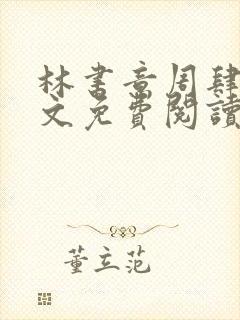 林書音周肆
文免費閱讀
董立范